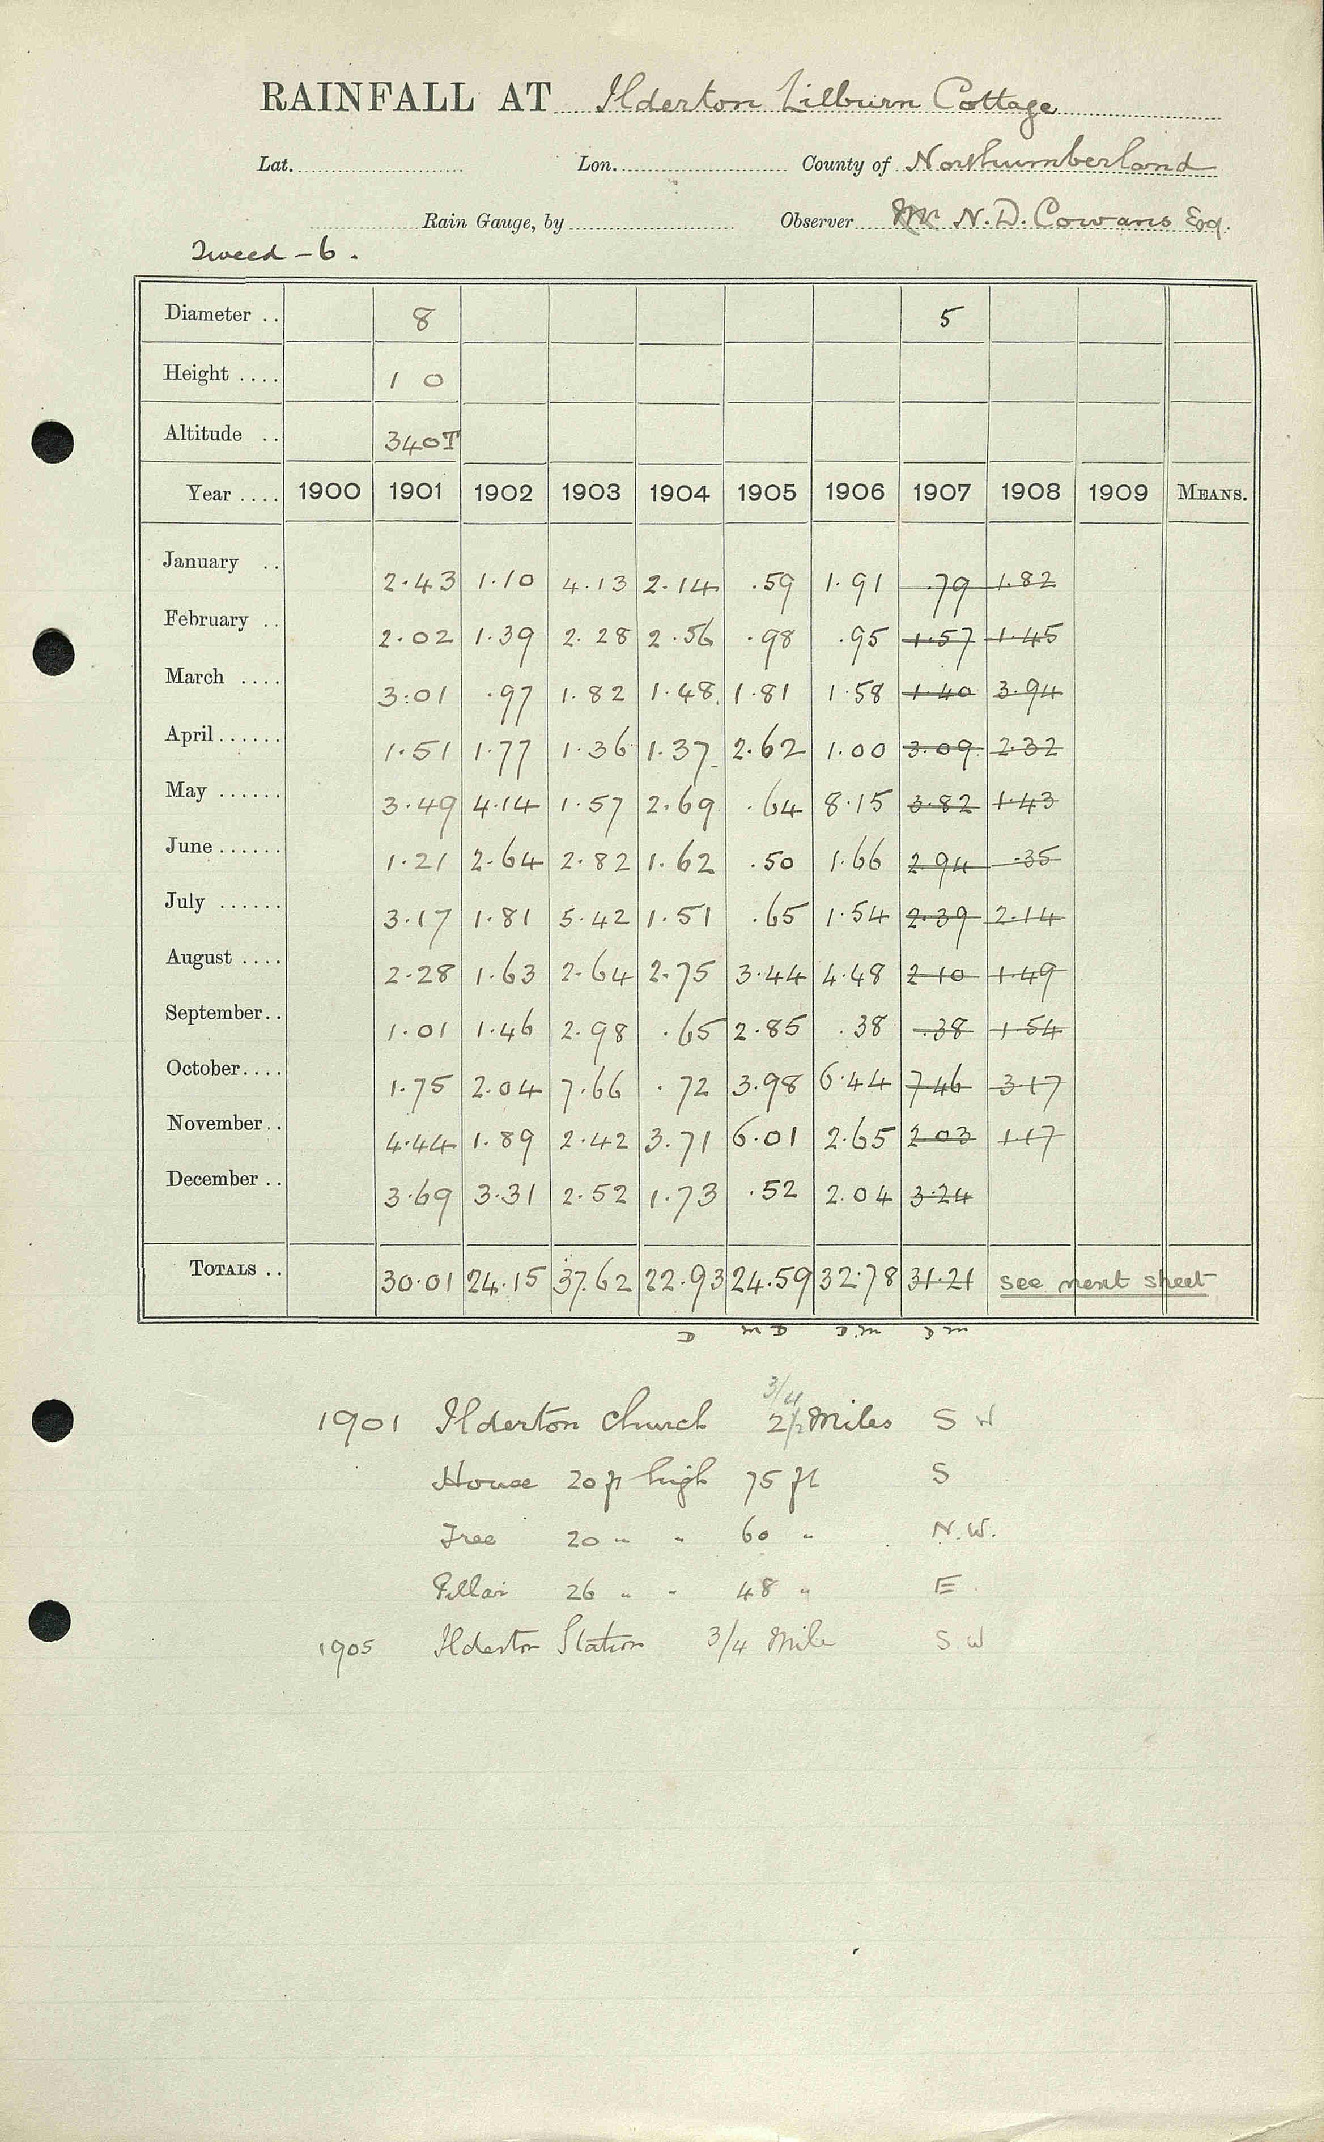 RAINFALL AT Ilderton Lilburn Cottage
Lat. Lon. County of Northumberland
Rain Gauge, by Observer Mr N. D. Cowans Esq.
Tweed - 6.
Diameter .. 8 5
Height .... 1 0
Altitude .. 340T
Year .... 1900 1901 1902 1903 1904 1905 1906 1907 1908 1909 MEANS.
January .. 2.43 1.10 4.13 2.14 .59 1.91 .79 1.82
February .. 2.02 1.39 2.28 2.56 .98 .95 1.57 1.45
March .... 3.01 .97 1.82 1.48 1.81 1.58 1.40 3.94
April...... 1.51 1.77 1.36 1.37 2.62 1.00 3.09 2.32
May ...... 3.49 4.14 1.57 2.69 .64 8.15 3.82 1.43
June...... 1.21 2.64 2.82 1.62 .50 1.66 2.94 .35
July ...... 3.17 1.81 5.42 1.51 .65 1.54 2.39 2.14
August .... 2.28 1.63 2.64 2.75 3.44 4.48 2.10 1.49
September.. 1.01 1.46 2.98 .65 2.85 .38 .38 1.54
October.... 1.75 2.04 7.66 .72 3.98 6.44 7.46 3.17
November.. 4.44 1.89 2.42 3.71 6.01 2.65 2.03 1.17
December .. 3.69 3.31 2.52 1.73 .52 2.04 3.24
TOTALS .. 30.01 24.15 37.62 22.93 24.59 32.78 31.21 see next sheet
D M D D.M D M
3/4
1901 Ilderton Church 2 1/2 Miles S W
House 20 ft high 75 ft S
Tree 20 " " 60 " N.W.
Pillar 26 " " 48 " E
1905 Ilderton Station 3/4 Mile S W